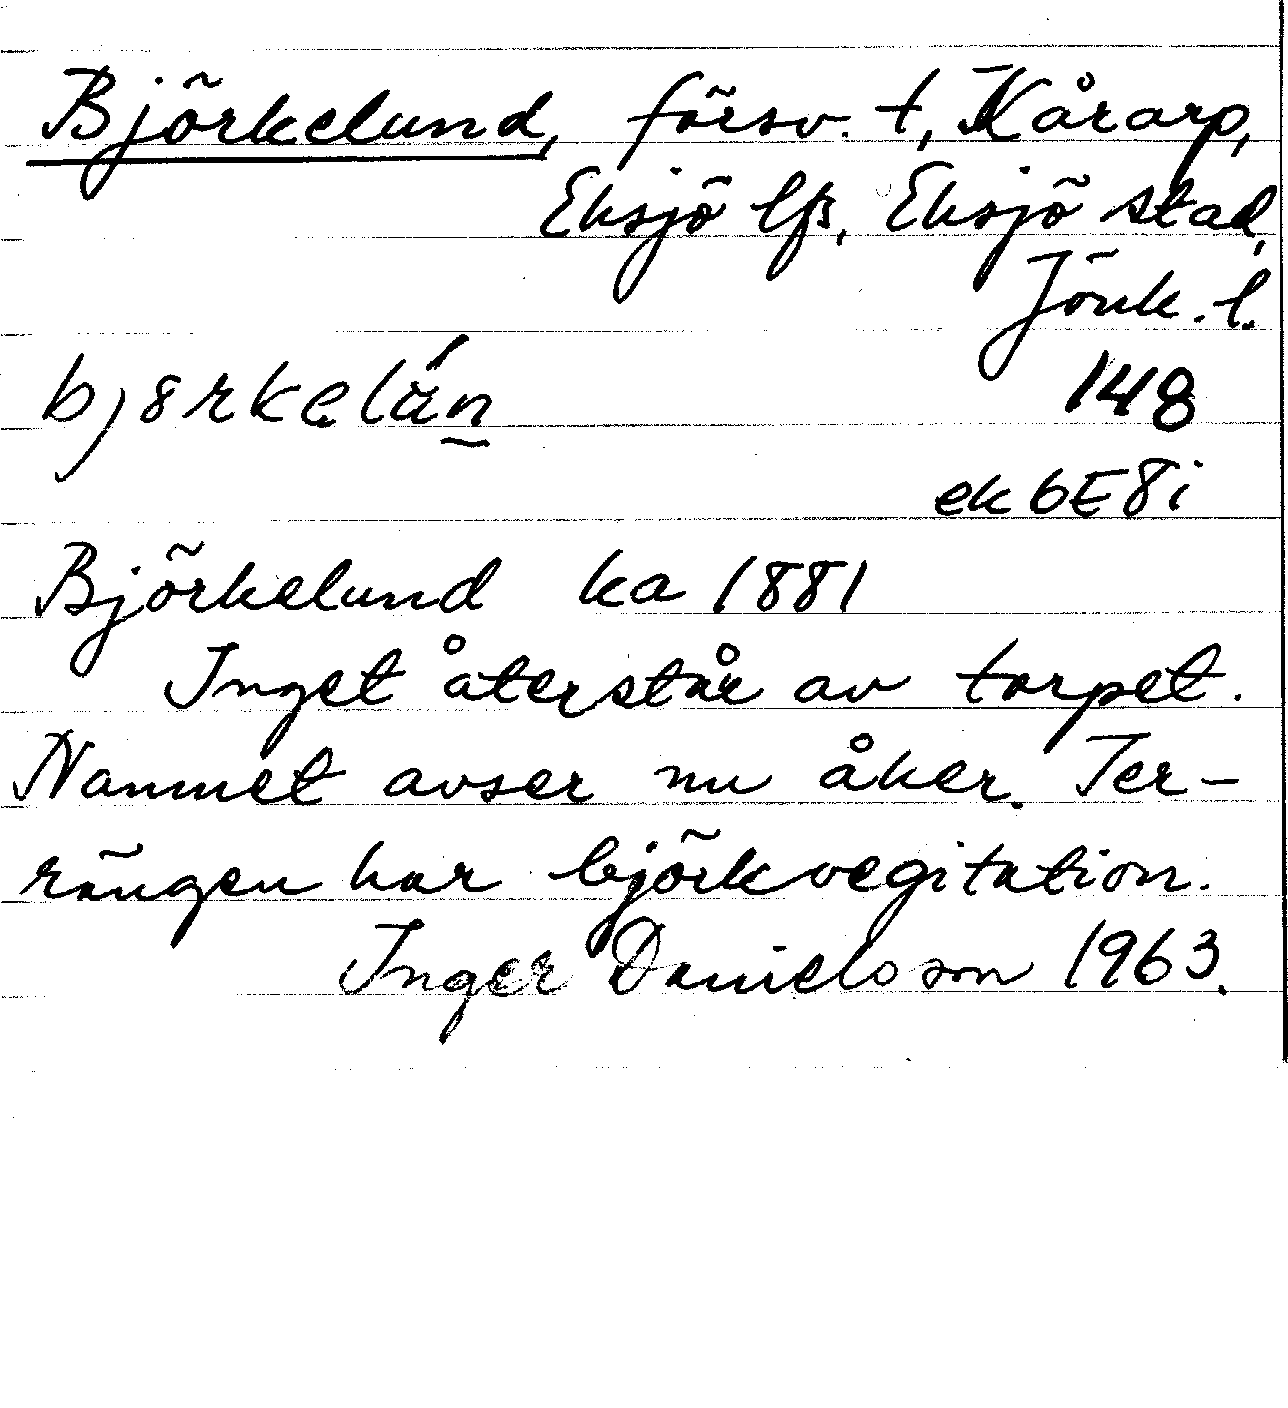 Björkelund, försv. t, Kårarp,
Eksjö lfs, Eksjö stad,
Jönk. l.
148
ek 6E8i
Björkelund ka 1881
Inget återstår av torpet.
Namnet avser nu åker. Ter-
rängen har björkvegitation.
Inger Danielsson 1963.